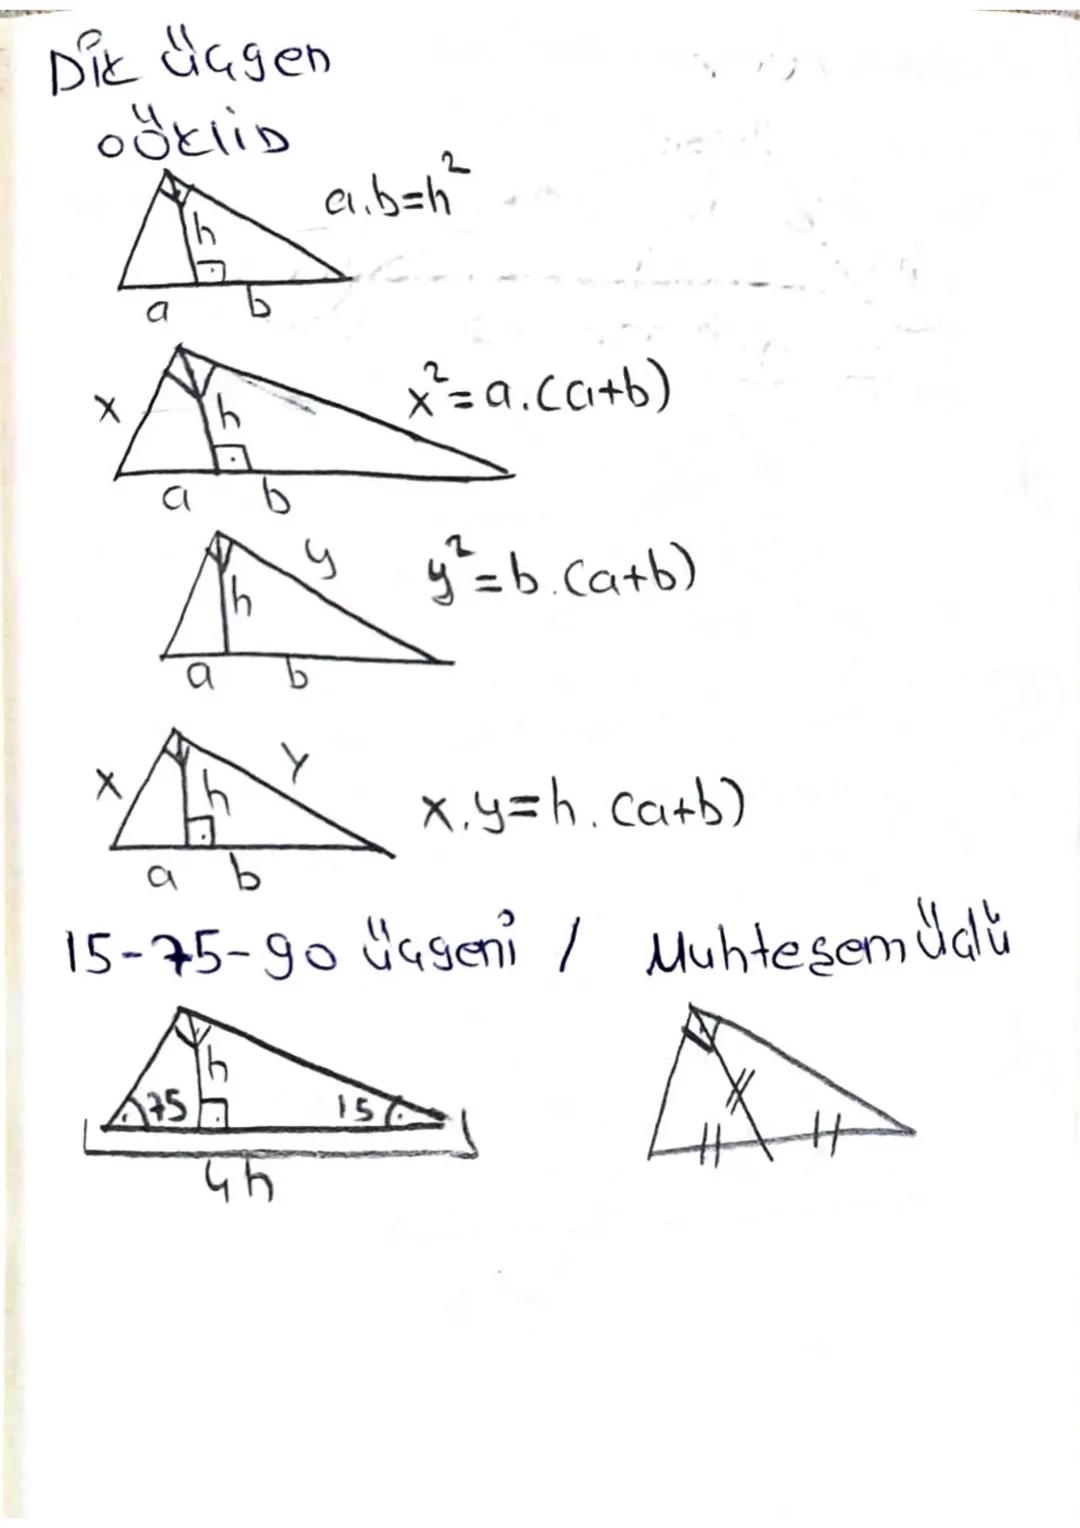 Dik üçgen
oöklid
a.b=h²
h
a b
x
x²=a.(a+b)
h
a b
y
y²=b.(a+b)
h
a b
x
y
h
x.y=h.(a+b)
a b
15-75-90 üçgeni / Muhteşem üçlü
h
75 15
4h